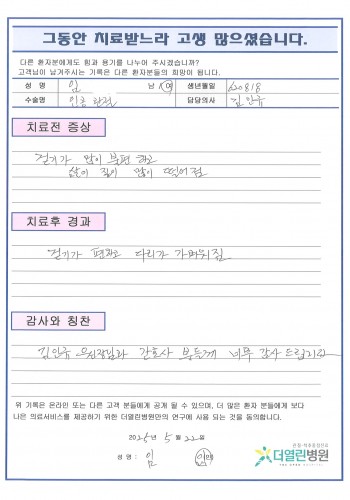 그동안 치료받느라 고생 많으셨습니다.
다른 환자분에게도 힘과 용기를 나누어 주시겠습니까?
고객님이 남겨주시는 기록은 다른 환자분들의 희망이 됩니다.
성 명 임 남 / 여 생년월일
수술명 인공관절 담당의사 김인규
치료전 증상
걷기가 많이 불편하고
삶의 질이 많이 떨어짐
치료후 경과
걷기가 편하고 다리가 가벼워짐
감사와 칭찬
김인규 원장님과 간호사 분들께 너무 감사드립니다
위 기록은 온라인 또는 다른 고객 분들에게 공개 될 수 있으며, 더 많은 환자 분들에게 보다
나은 의료서비스를 제공하기 위한 더열린병원만의 연구에 사용 되는 것을 동의합니다.
2025년 5월 22일
성 명 : 임 (인)
관절·척추중점진료
더열린병원